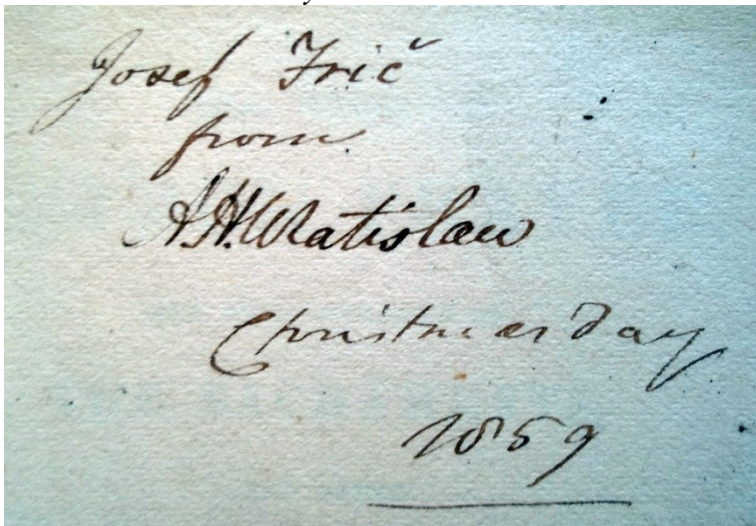 Josef Frič
from
A.H.Wratislaw
Christmas day
1859